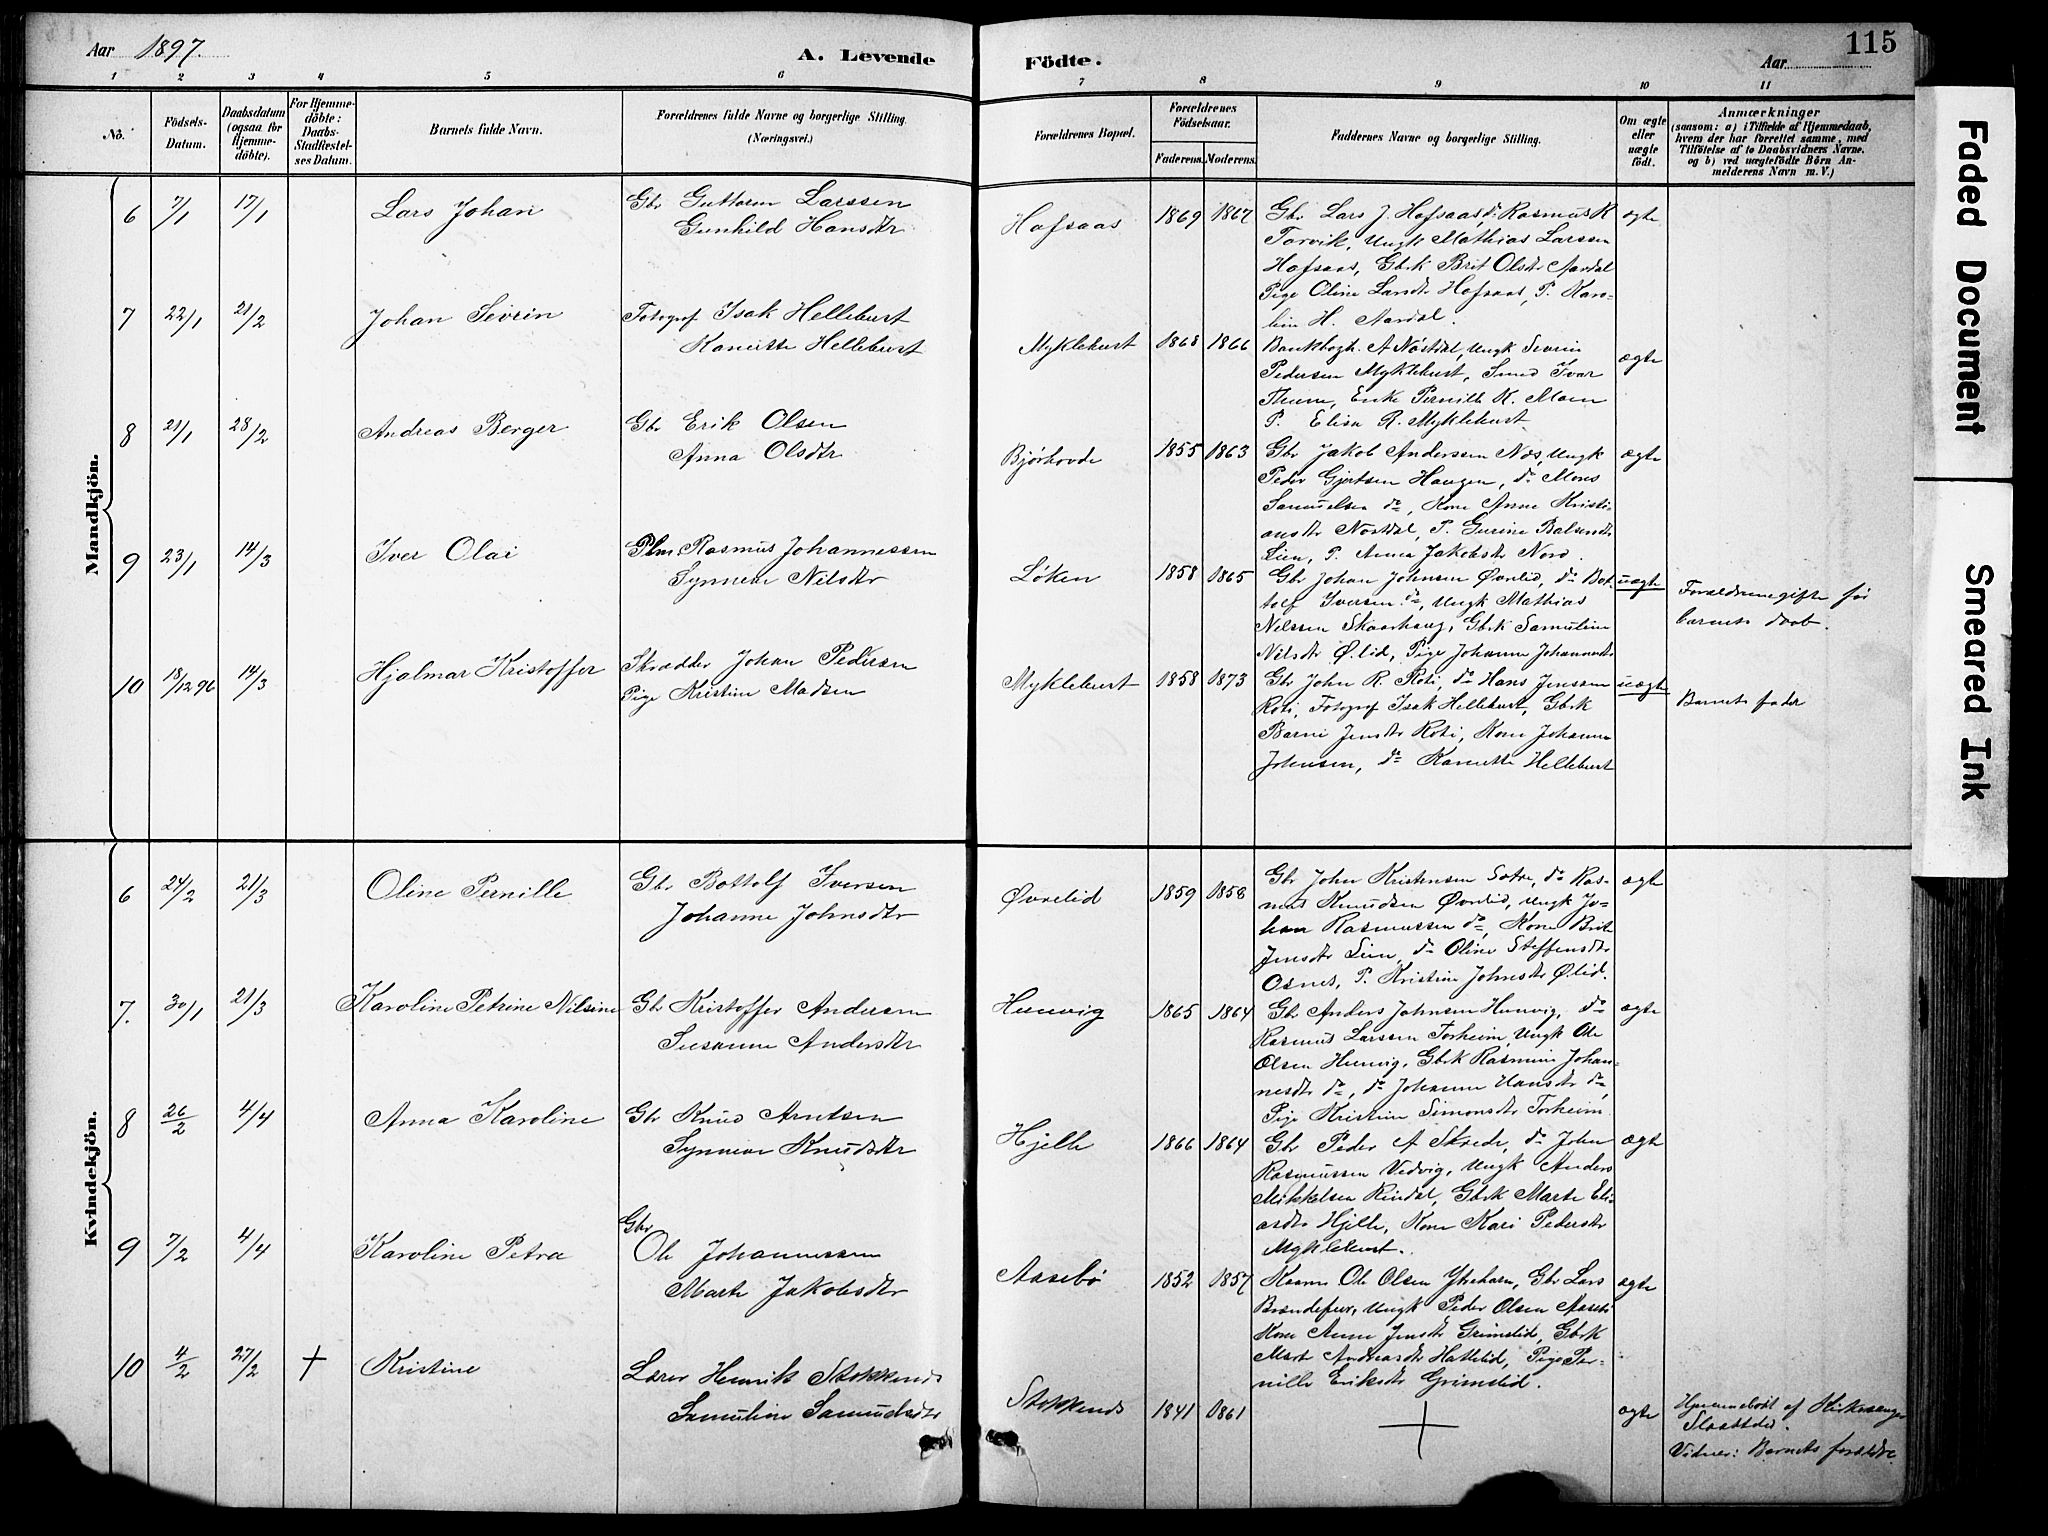 Aar 1897.
A. Levende Födte.
Aar
115
1 2 3 4 5 6 7 8 9 10 11
No.
Födsels-Datum.
Daabsdatum (ogsaa for Hjemmedöbte).
For Hjemmedöbte: Daabs-Stadfæstelses Datum.
Barnets fulde Navn.
Forældrenes fulde Navne og borgerlige Stilling. (Næringsvei.)
Forældrenes Bopæl.
Forældrenes Födselsaar.
Faderens. Moderens.
Faddernes Navne og borgerlige Stilling.
Om ægte eller uægte födt.
Anmærkninger
(saasom: a) i Tilfælde af Hjemmedaab,
hvem der har forrettet samme, med
Tilföielse af to Daabsvidners Navne.
og b) ved uægtefödte Börn An-
melderens Navn m. V.)
Mandkjön.
6 7/1 17/1 Lars Johan
Gbr Guttorm Larssen
Gunhild Hansdtr
Hafsaas 1869 1867
Gbr Lars J. Hafsaas, do Rasmus R
Tarvik, Ungk Mathias Larssen
Hafsaas, Gbrk Brit Olsdtr Aardal
Pige Oline Larsdtr Hafsaas, P. Karo-
line H. Aardal.
ægte
7 22/1 21/2 Johan Sevrin
Fotograf Isak Helleburt
Kanutte Helleburt
Myklebust 1868 1866
Bankbogh. A Nøstdal, Ungk Sevrin
Pedersen Myklebust, Smed Ivar
Thune, Enke Pernille K. Moen
P. Elisa R. Myklebust
ægte
8 21/1 28/2 Andreas Berger
Gbr Erik Olsen
Anna Olsdtr
Bjørhovde 1855 1863
Gbr Jakob Anderssen Nos, Ungk
Peder Gjertsen Haugen, do Mons
Samuelsen do, Kone Anne Kristi-
ansdtr Nøstdal, P. Gurine Balsendtr
Lien, P. Anna Jakobsdtr Nord.
ægte
9 23/1 14/3 Iver Olai
Plm Rasmus Johannessen
Synneve Nilsdtr
Løken 1858 1865
Gbr Johan Johnsen Øvrelid, do Bot-
tolf Iversen do, Ungk Mathias
Nilssen Skaarhaug, Gbrk Samuline
Nilsdtr Ø.lid, Pige Johanne Johannesdtr
uægte
Forældrene gifte før
barnets daab.
10 18/12 96 14/3 Hjalmar Kristoffer
Skrædder Johan Pedersen
Pige Kristine Madsen
Myklebust 1858 1873
Gbr John R. Roti, do Hans Jenssen
Roti, Fotograf Isak Helleburt, Gbrk
Barni Jensdtr Roti, Kone Johanne
Johensen, do Kanutte Helleburt
uægte
Barnets fader
Kvindekjön.
6 24/2 21/3 Oline Pernille
Gbr Bottolf Iversen
Johanne Johnsdtr
Øvrelid 1859 1858
Gbr John Kristensen Sætre, do Ras-
mus Knudsen Øvrelid, Ungk Jo-
han Rasmussen do, Kone Brit
Jensdtr Lien, do Oline Steffensdtr
Osnes, P. Kristine Johnsdtr Ø.lid.
ægte
7. 30/1 21/3 Karoline Petrine Nilsine
Gbr Kristoffer Andersen
Susanne Andersdtr
Hunvig 1865 1864
Gbr Anders Johnsen Hunvig, do
Rasmus Larssen Torheim, Ungk Ole
Olsen Hunvig, Gbrk Rasmine Johan-
nesdtr do, do Johanne Hansdtr do,
Pige Kristine Simonsdtr Torheim.
ægte
8 26/2 4/4 Anna Karoline
Gbr Knud Arntsen
Synneve Knudsdtr
Hjelle 1866 1864
Gbr Peder A Skrede, do John
Rasmussen Vedvig, Ungk Anders
Mikkelsen Rindal, Gbrk Marte Eli-
asdtr Hjelle, Kone Kari Pedersdtr
Myklebust.
ægte
9 7/2 4/4 Karoline Petra
Gbr
Ole Johannessen
Marte Jakobsdtr
Aasebø 1852 1857
Kaarm Ole Olsen Ytrehorn, Gbr Lars
Brændefur, Ungk Peder Olsen Aasebø
Kone Anne Jensdtr Grimelid, Gbrk
Mart Andreasdtr Hattelid, Pige Per-
nille Eriksdtr Grimelid.
ægte
10 4/2 27/2 + Kristine
Lærer Henrik Stokkenes
Samuline Samuelsdtr
Stokkenes 1841 1861
+
ægte
Hjemmedøbt af Kirkesanger
Vidner: Barnets forældre
Faded Document
Smeared Ink